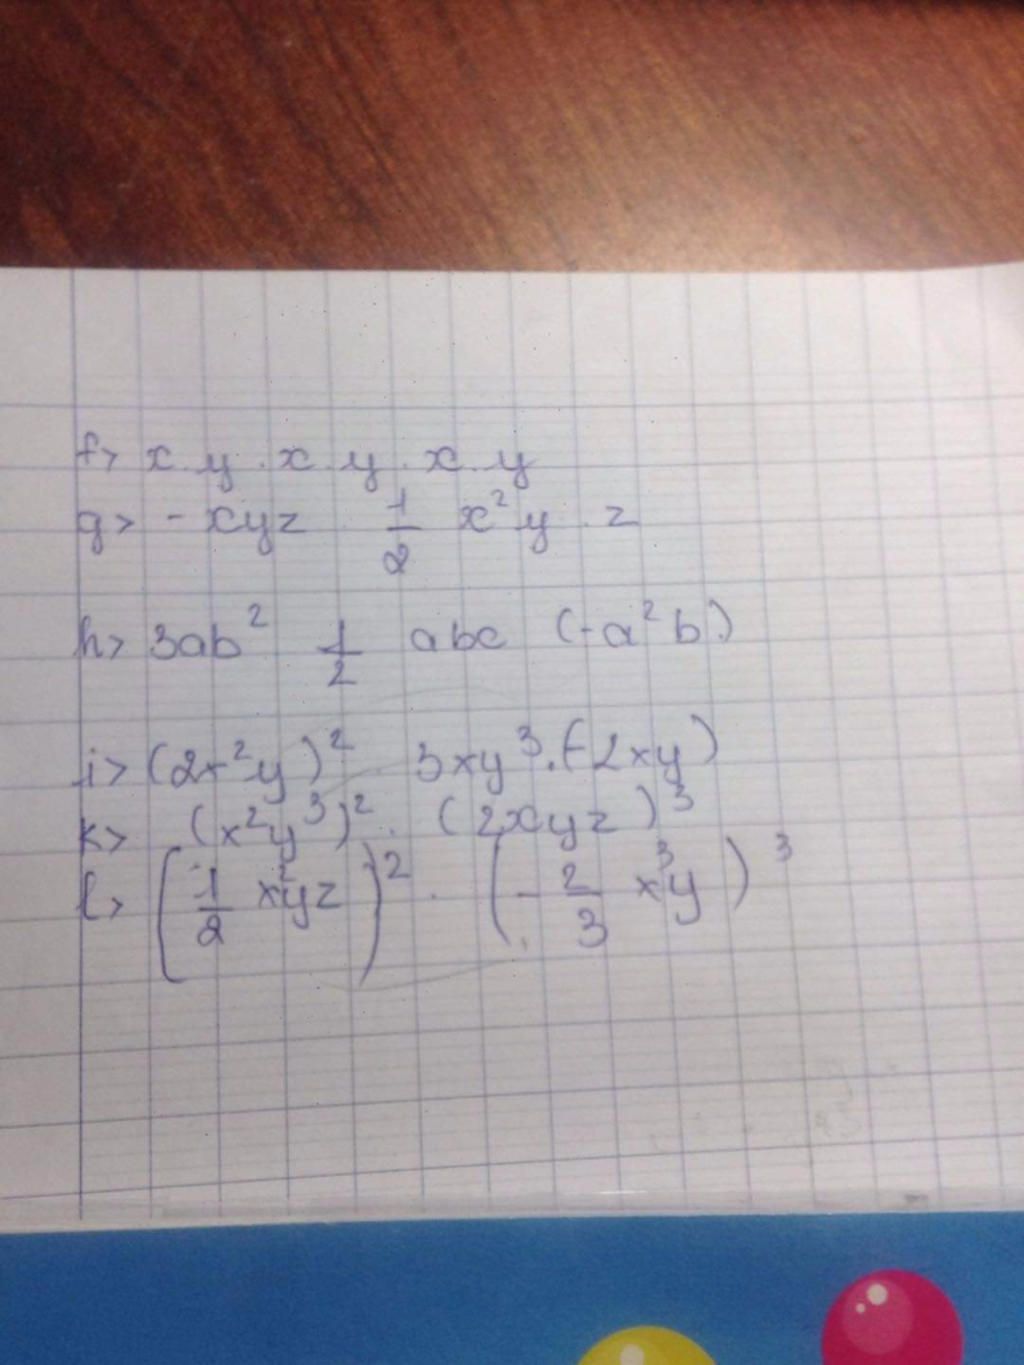 f> x.y.x.y.x.y
g> -xyz 1/2 x²y.z
h> 3ab² 1/2 abc (-a²b)
i> (2x²y)² 3xy³.(-2xy)
k> (x²y³)².(2xyz)³
l> (1/2 x²yz)².(-2/3 x³y)³